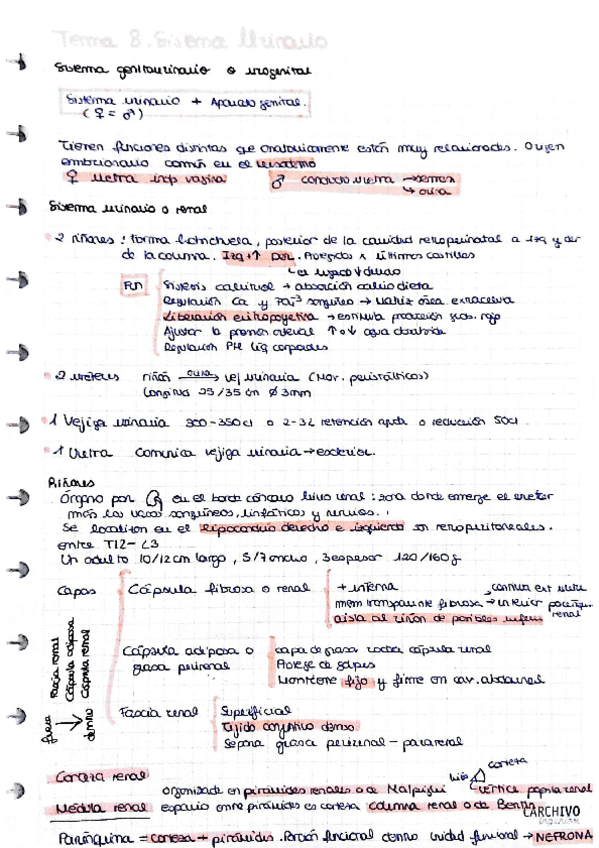 Tema 8. Sistema Urinario
Sistema genitourinario o urogenital
Sistema urinario + Aparato genital.
(♀ = ♂)
Tienen funciones distintas que anatomicamente están muy relacionadas. Origen
embrionario común en el mesodermo
♀ uretra indp vagina
♂ conducto uretra → semen
→ orina
Sistema urinario o renal
2 riñones: forma habichuela, posterior de la cavidad retroperinatal a izq y der
de la columna. Izq +↑ Der. Protegidos x últimas costillas
el hígado ↓ derecho
Fun
Síntesis calcitriol → absorción calcio dieta
Regulación Ca y PO₄⁻³ sanguíneo → matriz ósea extracelular
Liberación eritropoyetina → estimula producción glob. rojo
Ajustar la presión arterial ↑ o ↓ agua
Regulación PH líq corporales
2 uréteres riñón orina → vej urinaria (Mov. peristálticos)
Longitud 25/35 cm ∅ 3mm
1 Vejiga urinaria 300-350cl o 2-3L retención aguda o reducción 50cl
1 Uretra Comunica vejiga urinaria → exterior.
Riñones
Órgano par en el borde cóncavo hilio renal: zona donde emerge el uréter
más los vasos sanguíneos, linfáticos y nervios.
Se localizan en el hipocondrio derecho e izquierdo son retroperitoneales.
entre T12-L3
Un adulto 10/12cm largo, 5/7 ancho, 3 espesor 120/160g
Capas
Cápsula fibrosa o renal
+ interna
continua ext uréter
mem transparente fibrosa → interior
renal
aisla al riñón de posibles infecc
Cápsula adiposa o
grasa perirrenal
capa de grasa rodea cápsula renal
Protege de golpes
Mantiene fijo y firme en cav. abdominal
Fascia renal
Superficial
Tejido conjuntivo denso
Separa grasa perirenal - pararenal
Fascia renal
Cápsula adiposa
Cápsula renal
fuera
dentro
Corteza renal
Médula renal
organizada en pirámides renales o de Malpigui
corteza
vértice papila renal
espacio entre pirámides es corteza columna renal o de Bertin
Parénquima = corteza + pirámides. Porción funcional dentro unidad funcional → NEFRONA
CARCHIVO